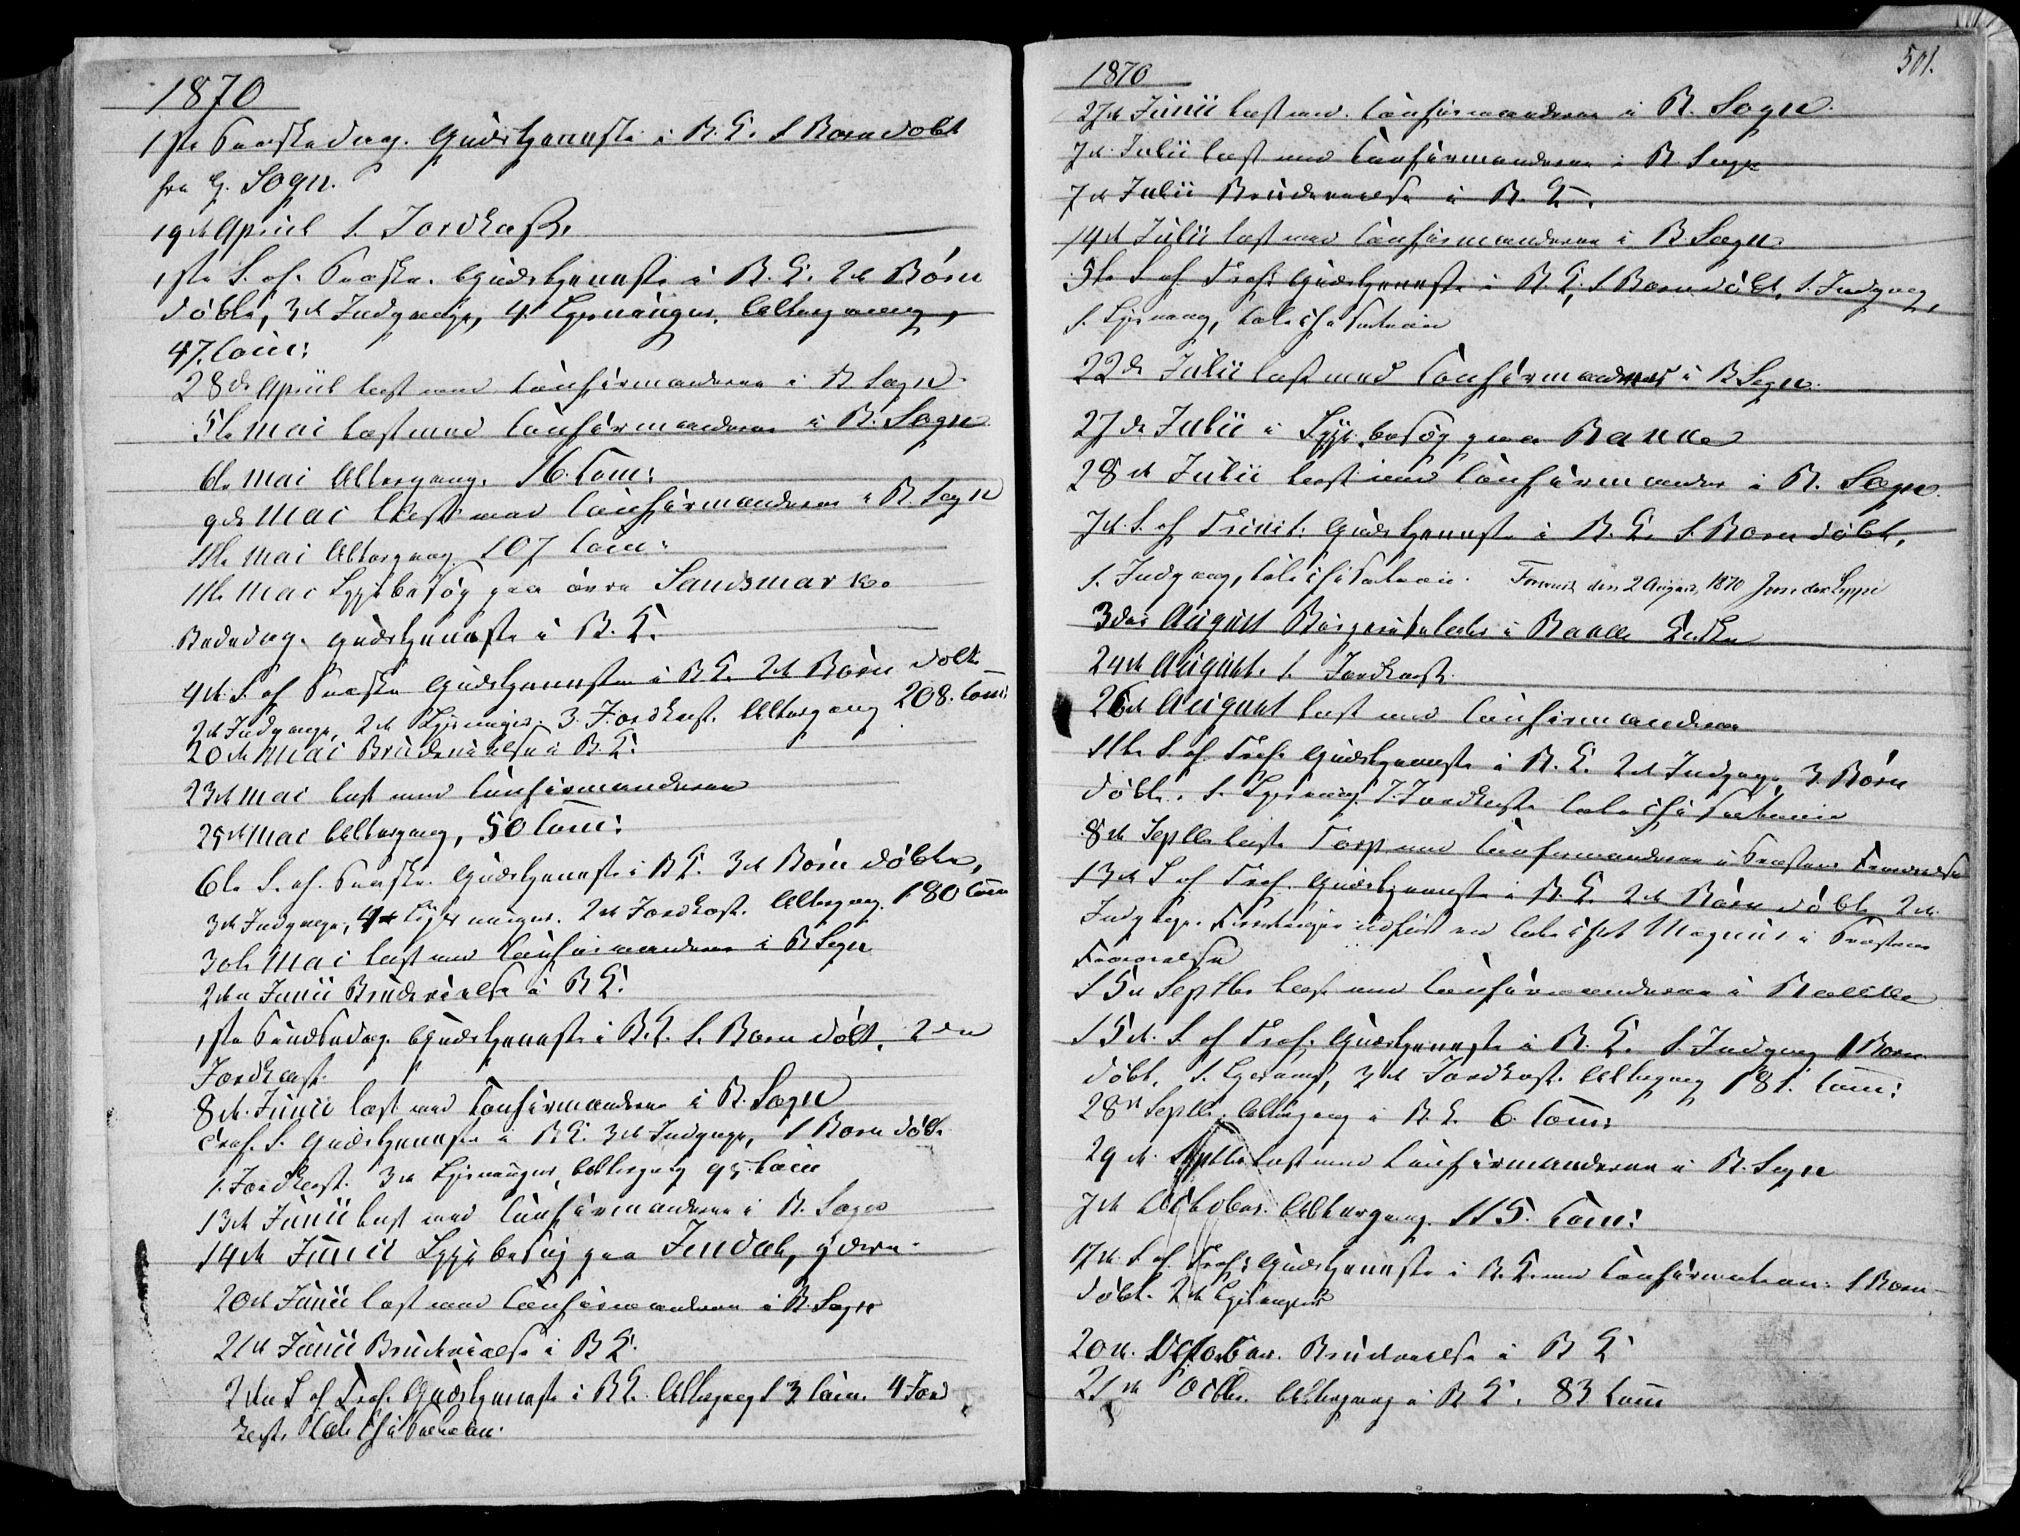 1870
1ste Paaskedag. Gudstjeneste i B. K. 1 Barn døbt
fra G. Sogn.
19de April 1. Jordkast.
1ste S. ef. Paaske. Gudstjeneste i B. K. 2de Børn
døbte, 3de Indgange, 4. Altergang,
47. Com:
28de April læst med Confirmanderne i B Sogn.
5te Mai læst med Confirmanderne i B. Sogn
6te Mai Altergang. 16. Com:
9de Mai læst med Confirmanderne i B Sogn
11te Mai Altergang 107 Com:
11te Mai Sygebesøg paa øvre Sandsmark.
Bededag. Gudstjeneste i B. K.
4de S. ef Paaske Gudstjeneste i B K. 2de Børn døbte
2de Indgange, 2de 3. Jordkast. Altergang 208. Com:
20de Mai Brudevielse i B K.
23de Mai læst med Confirmanderne
25de Mai Altergang, 50 Com:
6te S. ef. Paaske. Gudstjeneste i B K. 3de Børn døbte,
3de Indgange, 4de 2de Jordkast. Altergang. 180 Com
30te Mai læst med Confirmanderne i B Sogn
2den Junii Brudevielse i B K.
1ste Pindsedag. Gudstjeneste i B. K. 1. Barn døbt. 2den
Jordkast.
8de Junii læst med Confirmanderne i B. Sogn
Tref. S. Gudstjeneste i B K. 3de Indgange, 1 Barn døbt.
1. Jordkast. 3de Altergang 95. Com
13de Junii læst med Confirmanderne i B. Sogn
14de Junii Sygebesøg paa Jendal, ydern.
20de Junii læst med Confirmanderne i B. Sogn
21de Junii Brudevielse i B K.
2den S ef Tref. Gudstjeneste i B K. Altergang 13 Com. 4 Jord
kast. Catechisation.
1870
501.
27de Junii læst med Confirmanderne i B. Sogn.
7de Julii læst med Confirmanderne i B Sogn
7de Julii Brudevielse i B. K.
14de Julii læst med Confirmanderne i B Sogn.
5te S ef Tref: Gudstjeneste i B K, 1 Barn døbt, 1. Indgang,
1. Catechisation
22de Julii læst med Confirmanderne i B Sogn.
27de Julii i Sygebesøg paa
28de Julii læst med Confirmander i B. Sogn.
7de S. ef Trinit. Gudstjeneste i B. K. 1 Barn døbt,
1. Indgang, Catechisation. den 2 August 1870
3die August i
24de August. 1. Jordkast.
26de August læst med Confirmanderne
11te S. ef. Tref. Gudstjeneste i B. K. 2de Indgange, 3. Børn
døbte. 1. 7. Jordkaste Catechisation
8de Septbr læste Torp med Confirmanderne i Præstens Fraværelse
13de S ef Tref. Gudstjeneste i B. K. 2de Børn døbte 2de
Indgange. Forretningen udført ved Catechet Magnus i Præstens
Fraværelse
15de Septbr læst med Confirmanderne i
15de S. ef Tref. Gudstjeneste i B. K. 1. Indgang 1 Barn
døbt. 1. 3de Jordkast. Altergang 181. Com:
28de Septbr. Altergang i B. K. 6. Com:
29de Septbr læst med Confirmanderne i B. Sogn
7de October. Altergang. 115. Com:
17de S. ef. Tref: Gudstjeneste i B. K. med Confirmation. 1 Barn
døbt. 2de
20de October. Brudevielse i B K
21de Octbr. Altergang i B K. 83 Com